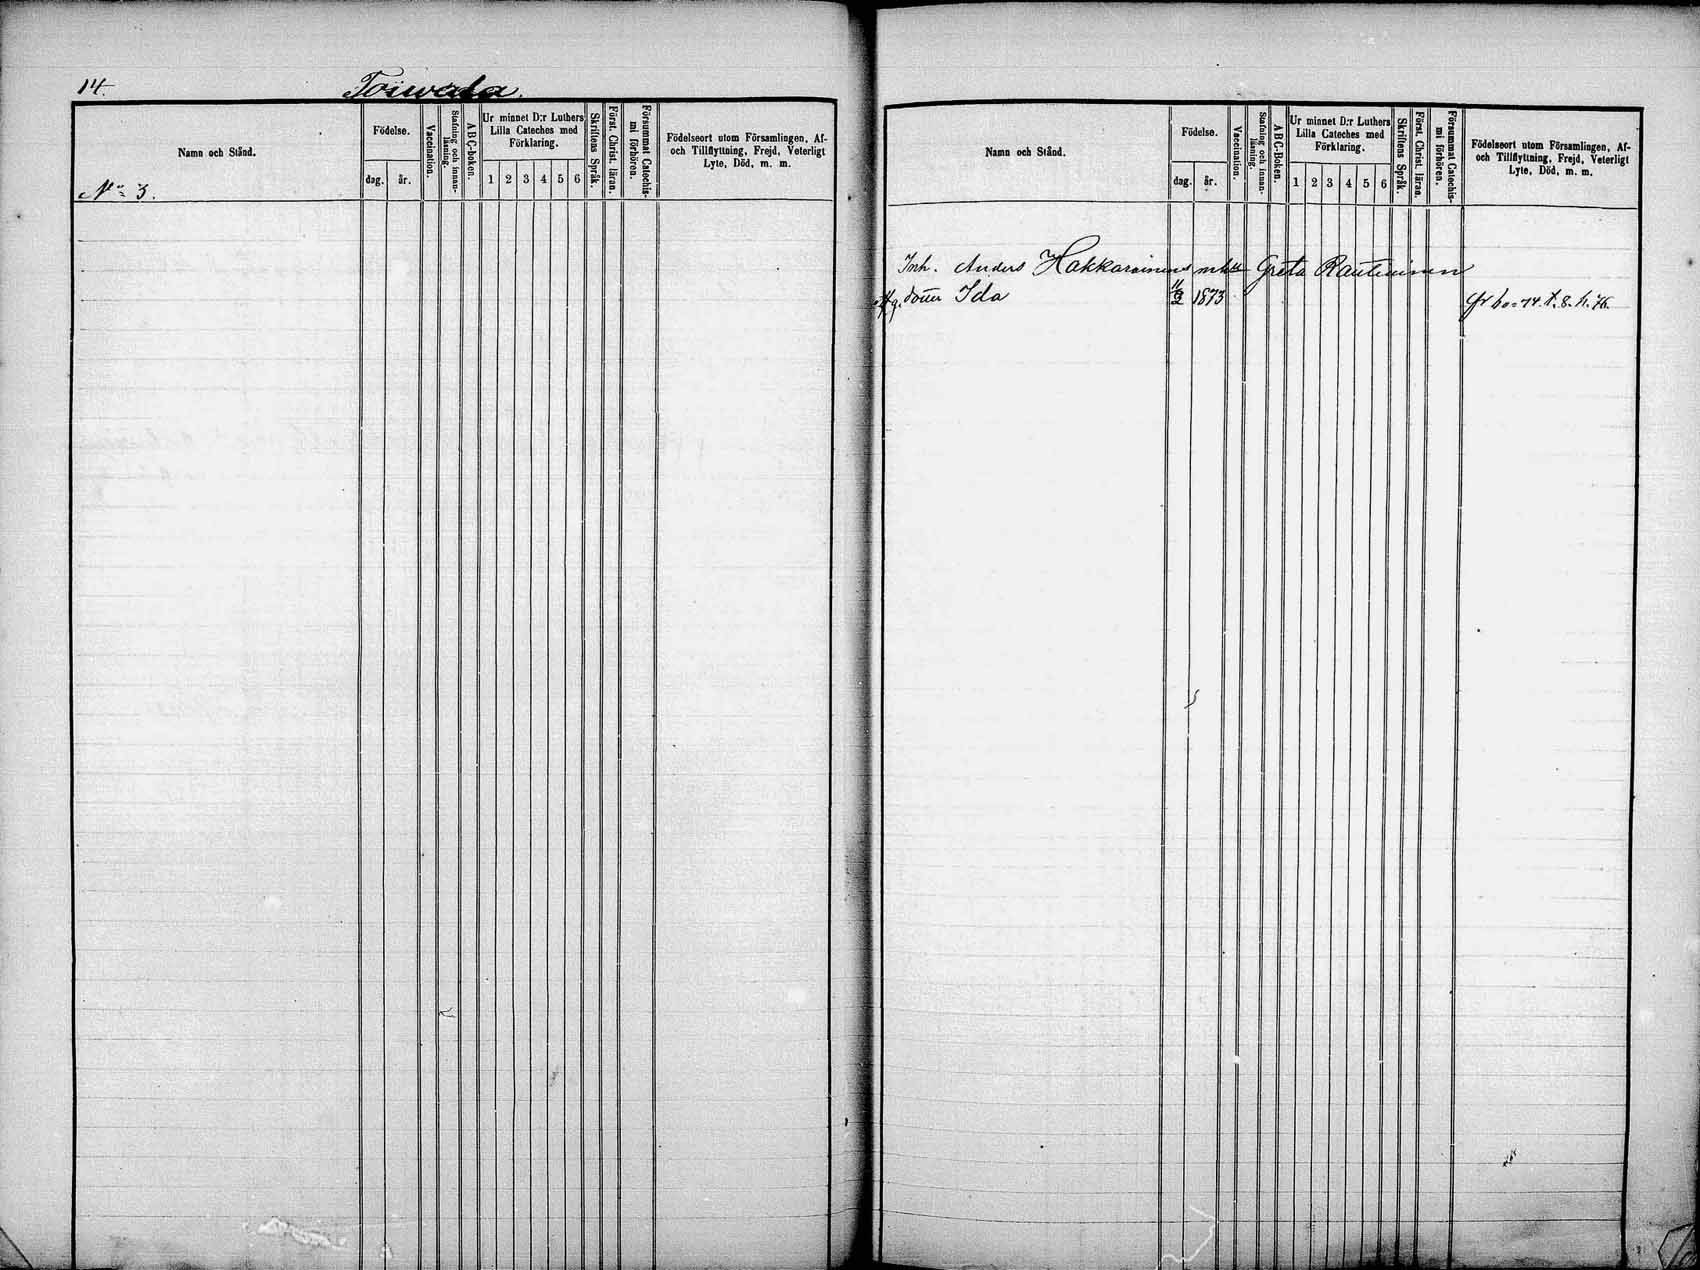 14.
Toiwala.
Namn och Stånd.
Födelse.
dag.
år.
Vaccination.
Stafning och innan-
läsning.
ABC-boken.
Ur minnet D:r Luthers
Lilla Cateches med
Förklaring.
1 2 3 4 5 6
Skriftens Språk.
Först. Christ. läran.
Försummat Catechis-
mi förhören.
Födelseort utom Församlingen, Af-
och Tillflyttning, Frejd, Veterligt
Lyte, Död, m. m.
No 3.
Namn och Stånd.
Födelse.
dag.
år.
Vaccination.
Stafning och innan-
läsning.
ABC-Boken.
Ur minnet D:r Luthers
Lilla Cateches med
Förklaring.
1 2 3 4 5 6
Skriftens Språk.
Först. Christ. läran.
Försummat Catechis-
mi förhören.
Födelseort utom Församlingen, Af-
och Tillflyttning, Frejd, Veterligt
Lyte, Död, m. m.
Inh. Anders Hakkarainens Greta Rautiainen
Ida 1873